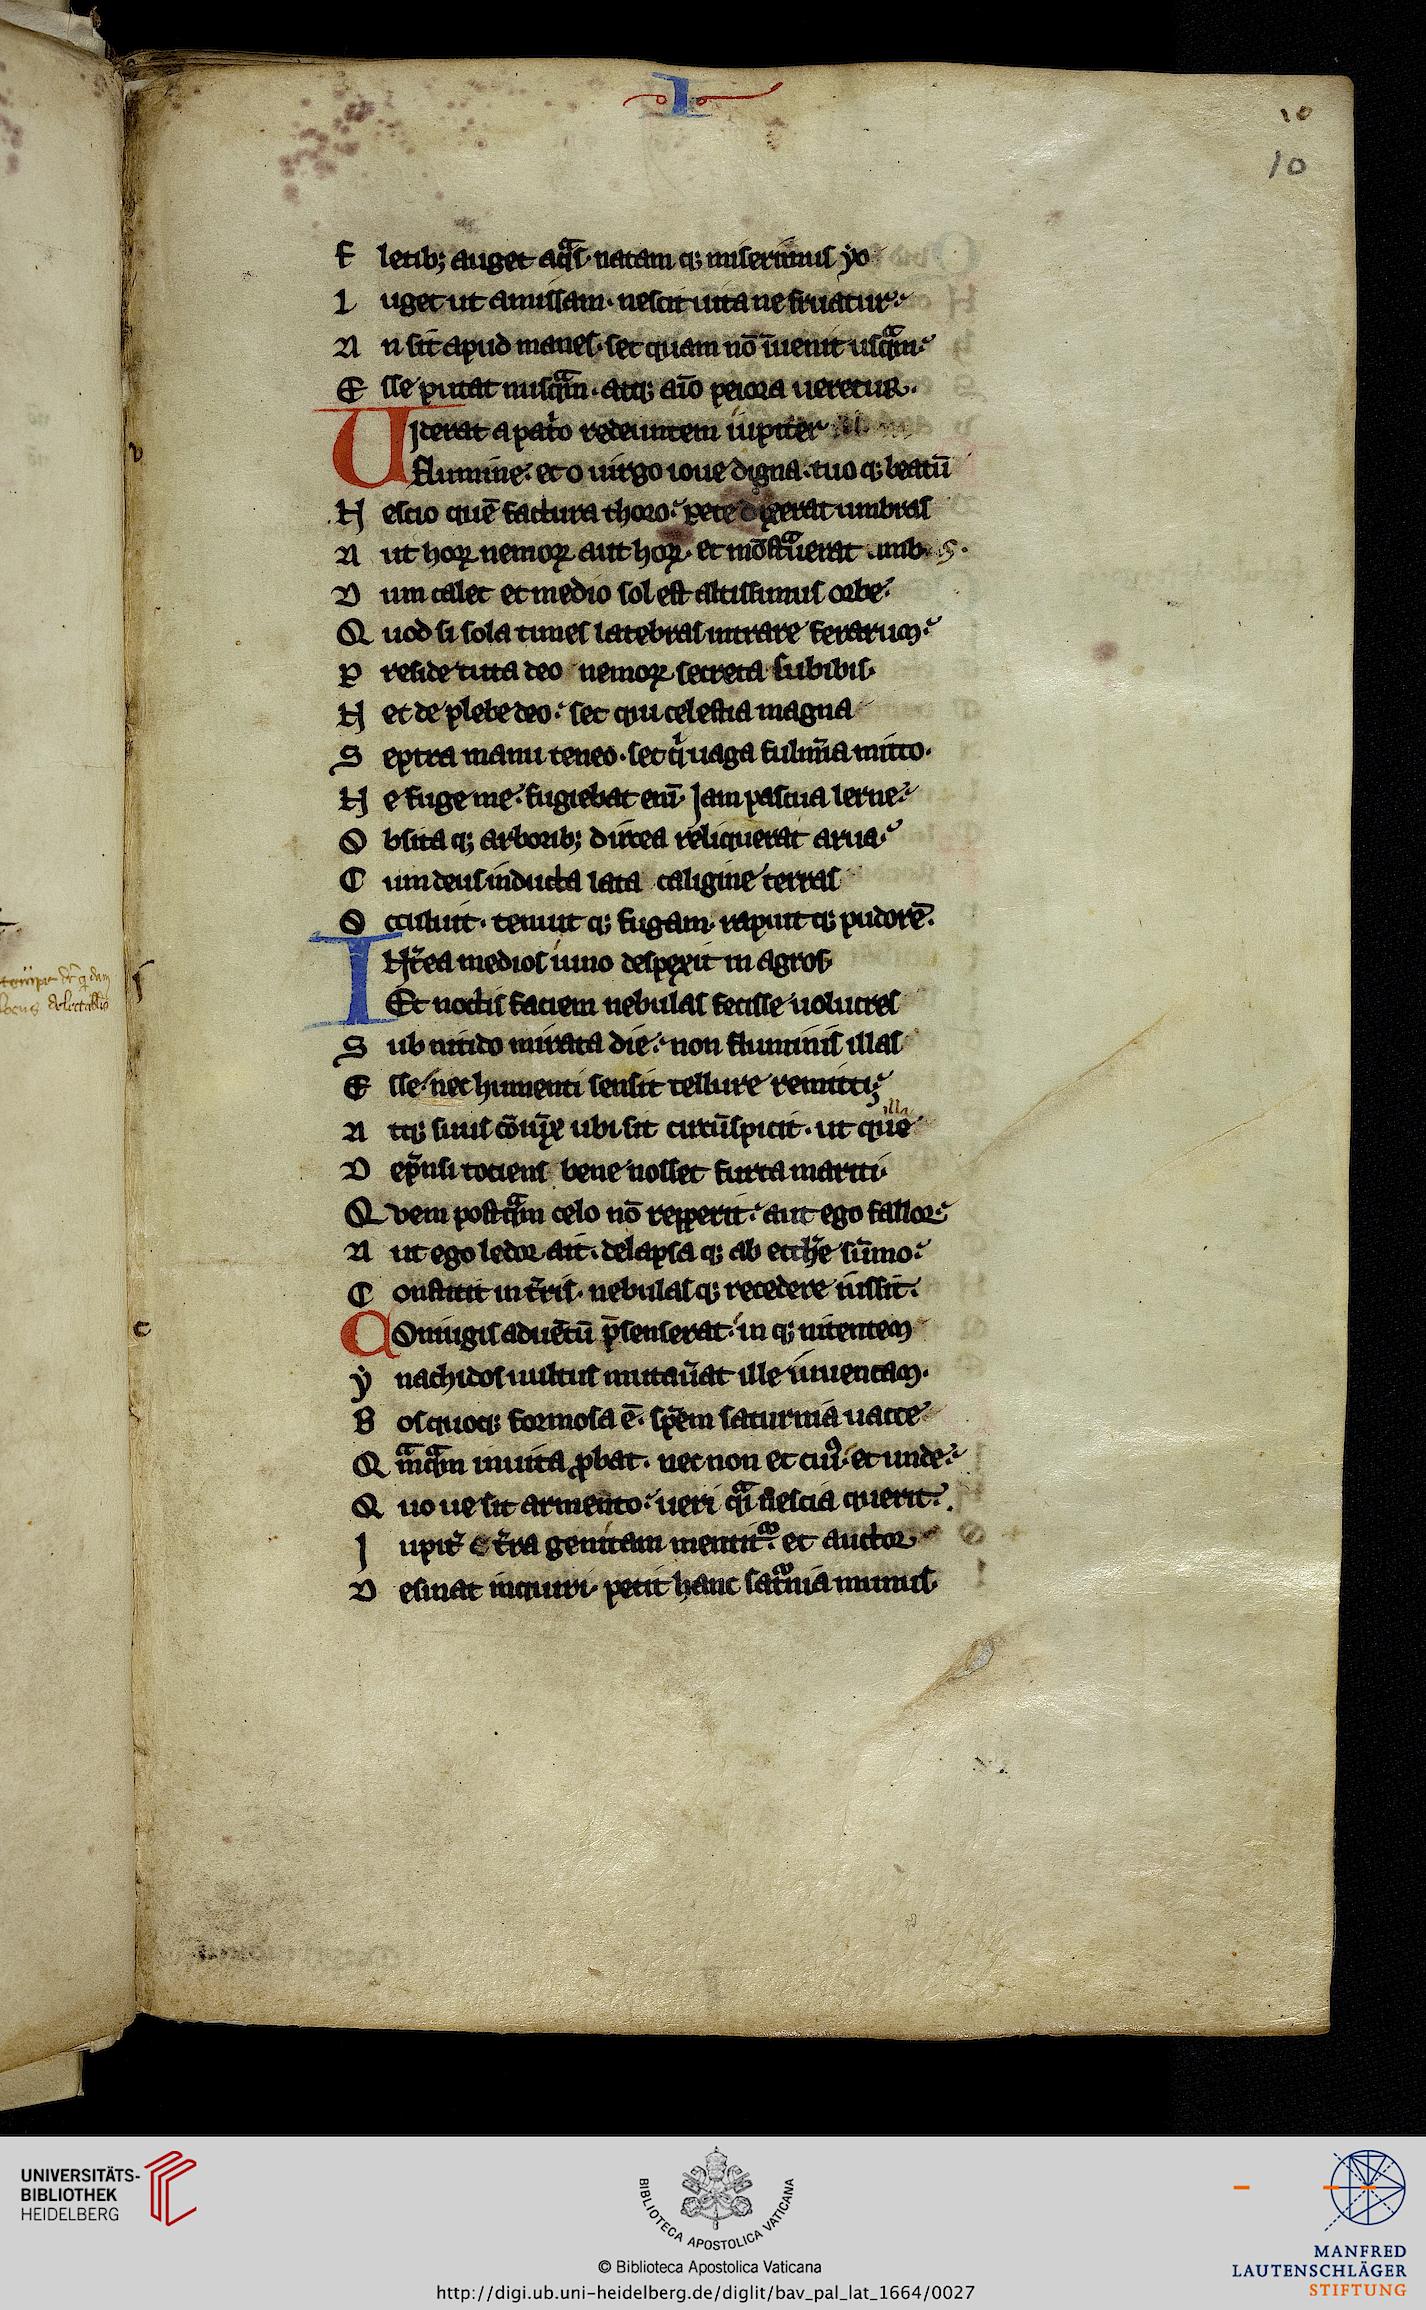 I
10
10
F letib; auget aq̃s. natam q; miserimus yo
L uget ut amissam. nescit uita ne fruatur.
A n sit apud manes. set quam nō īuenit usq̃m.
E sse putat nusq̃m. atq; aīo peiora ueretur.
Uiderat a pat̓o redeuntem iupiter
Flumine. et o uirgo ioue digna. tuo q; beatū
N escio quē factura thoro. pete dixerat umbras
A ut hoꝝ nemoꝝ aut hoꝝ. et mōstᵃuerat umb s.
D um calet et medio sol est altissimus orbe.
Q uod si sola times latebras intrare ferarum.
P reside tuta deo nemoꝝ secreta subibis.
N et de plebe deo. set qui celestia magna
S eptra manu teneo. set q̓ uaga fulmīa mitto.
N e fuge me. fugiebat enī. Jam pascua lerne.
O bsita q; arborib; dircea reliquerat arua.
C um deus inducta lata caligine terras
O cculuit. tenuit q; fugam. rapuit q; pudorē.
INt̃ea medios iuno despexit in agros
Et noctis faciem nebulas fecisse uolucres
S ub nitido mirata die. non fluminis illas
E sse. nec humenti sensit tellure remitti.
illa
A tq; suus cōiūx ubi sit circūspicit. ut que
D epͬnsi totiens bene nosset furta mariti.
Q vem postq̃m celo nō repperit. aut ego fallor.
A ut ego ledor ait. delapsa q; ab etthͤe sūmo.
C onstitit in t̃ris. nebulas q; recedere iussit.
COniugis aduētū p̄senserat. in q; nitentem
Y nachidos uultus mutau̓at ille iuuencam.
B os quoq; formosa ē. spēm saturnia uacce
Q m̃q̃m inuita ꝓbat. nec non et cuiꝰ. et unde.
Q uo ue sit armento. ueri q̃i nescia querit.
J upit̓ e t̃ra genitam mentit᷑. et auctor
D esinat inquiri. petit hanc sat᷑nia munus.
v
c
UNIVERSITÄTS-
BIBLIOTHEK
HEIDELBERG
BIBLIOTECA APOSTOLICA VATICANA
© Biblioteca Apostolica Vaticana
http://digi.ub.uni-heidelberg.de/diglit/bav_pal_lat_1664/0027
MANFRED
LAUTENSCHLÄGER
STIFTUNG